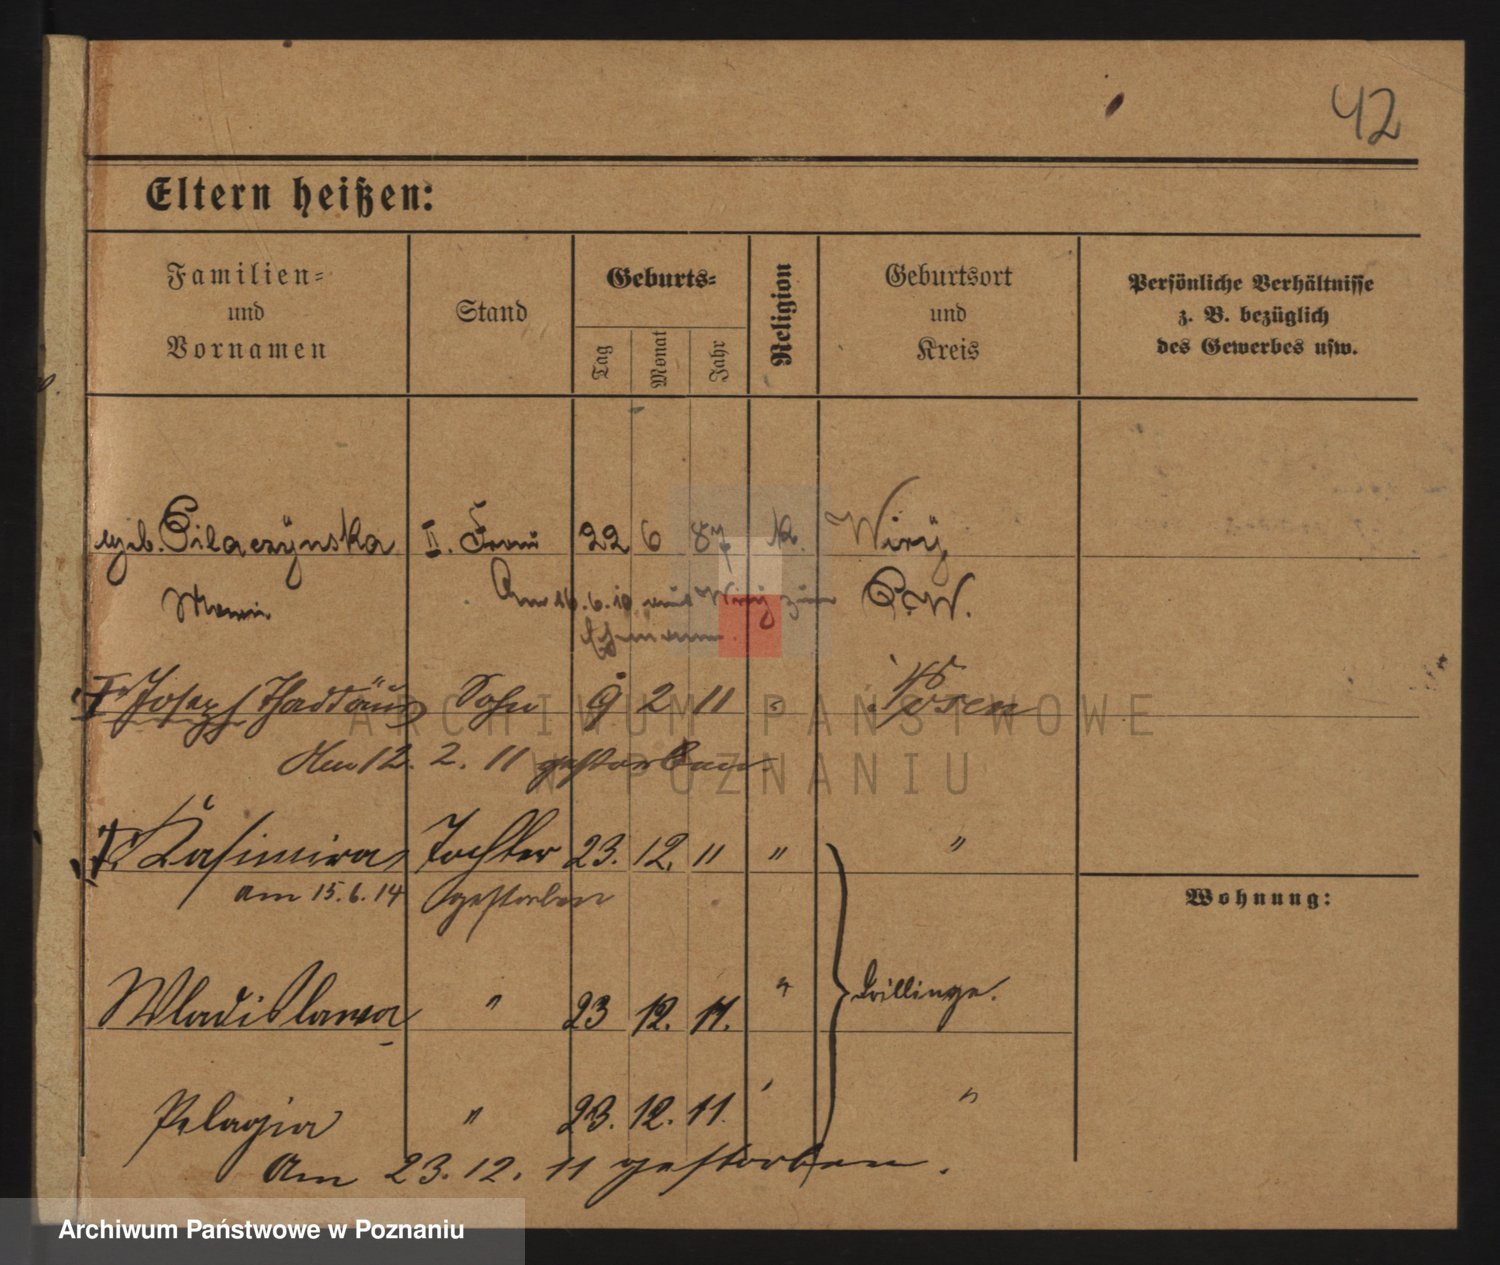 42
Eltern heißen:
Familien=
und
Vornamen
Stand
Geburts=
Tag
Monat
Jahr
Religion
Geburtsort
und
Kreis
Persönliche Verhältnisse
z. B. bezüglich
des Gewerbes usw.
geb. Pilaczÿnska II. Frau 22 6 87 k. Wirÿ
Maria Am 16.6.10 aus Wirÿ zum P.W.
Ehemann.
† Joseph Thaddäus Sohn 9 2 11 " Posen
Am 12. 2. 11 gestorben.
† Kasimira Tochter 23. 12. 11 " "
am 15.6.14 gestorben
Wohnung:
Wladislawa " 23 12. 11. " Drillinge.
Pelagia " 23. 12. 11. "
Am 23. 12. 11 gestorben.
ARCHIWUM PAŃSTWOWE
W POZNANIU
Archiwum Państwowe w Poznaniu